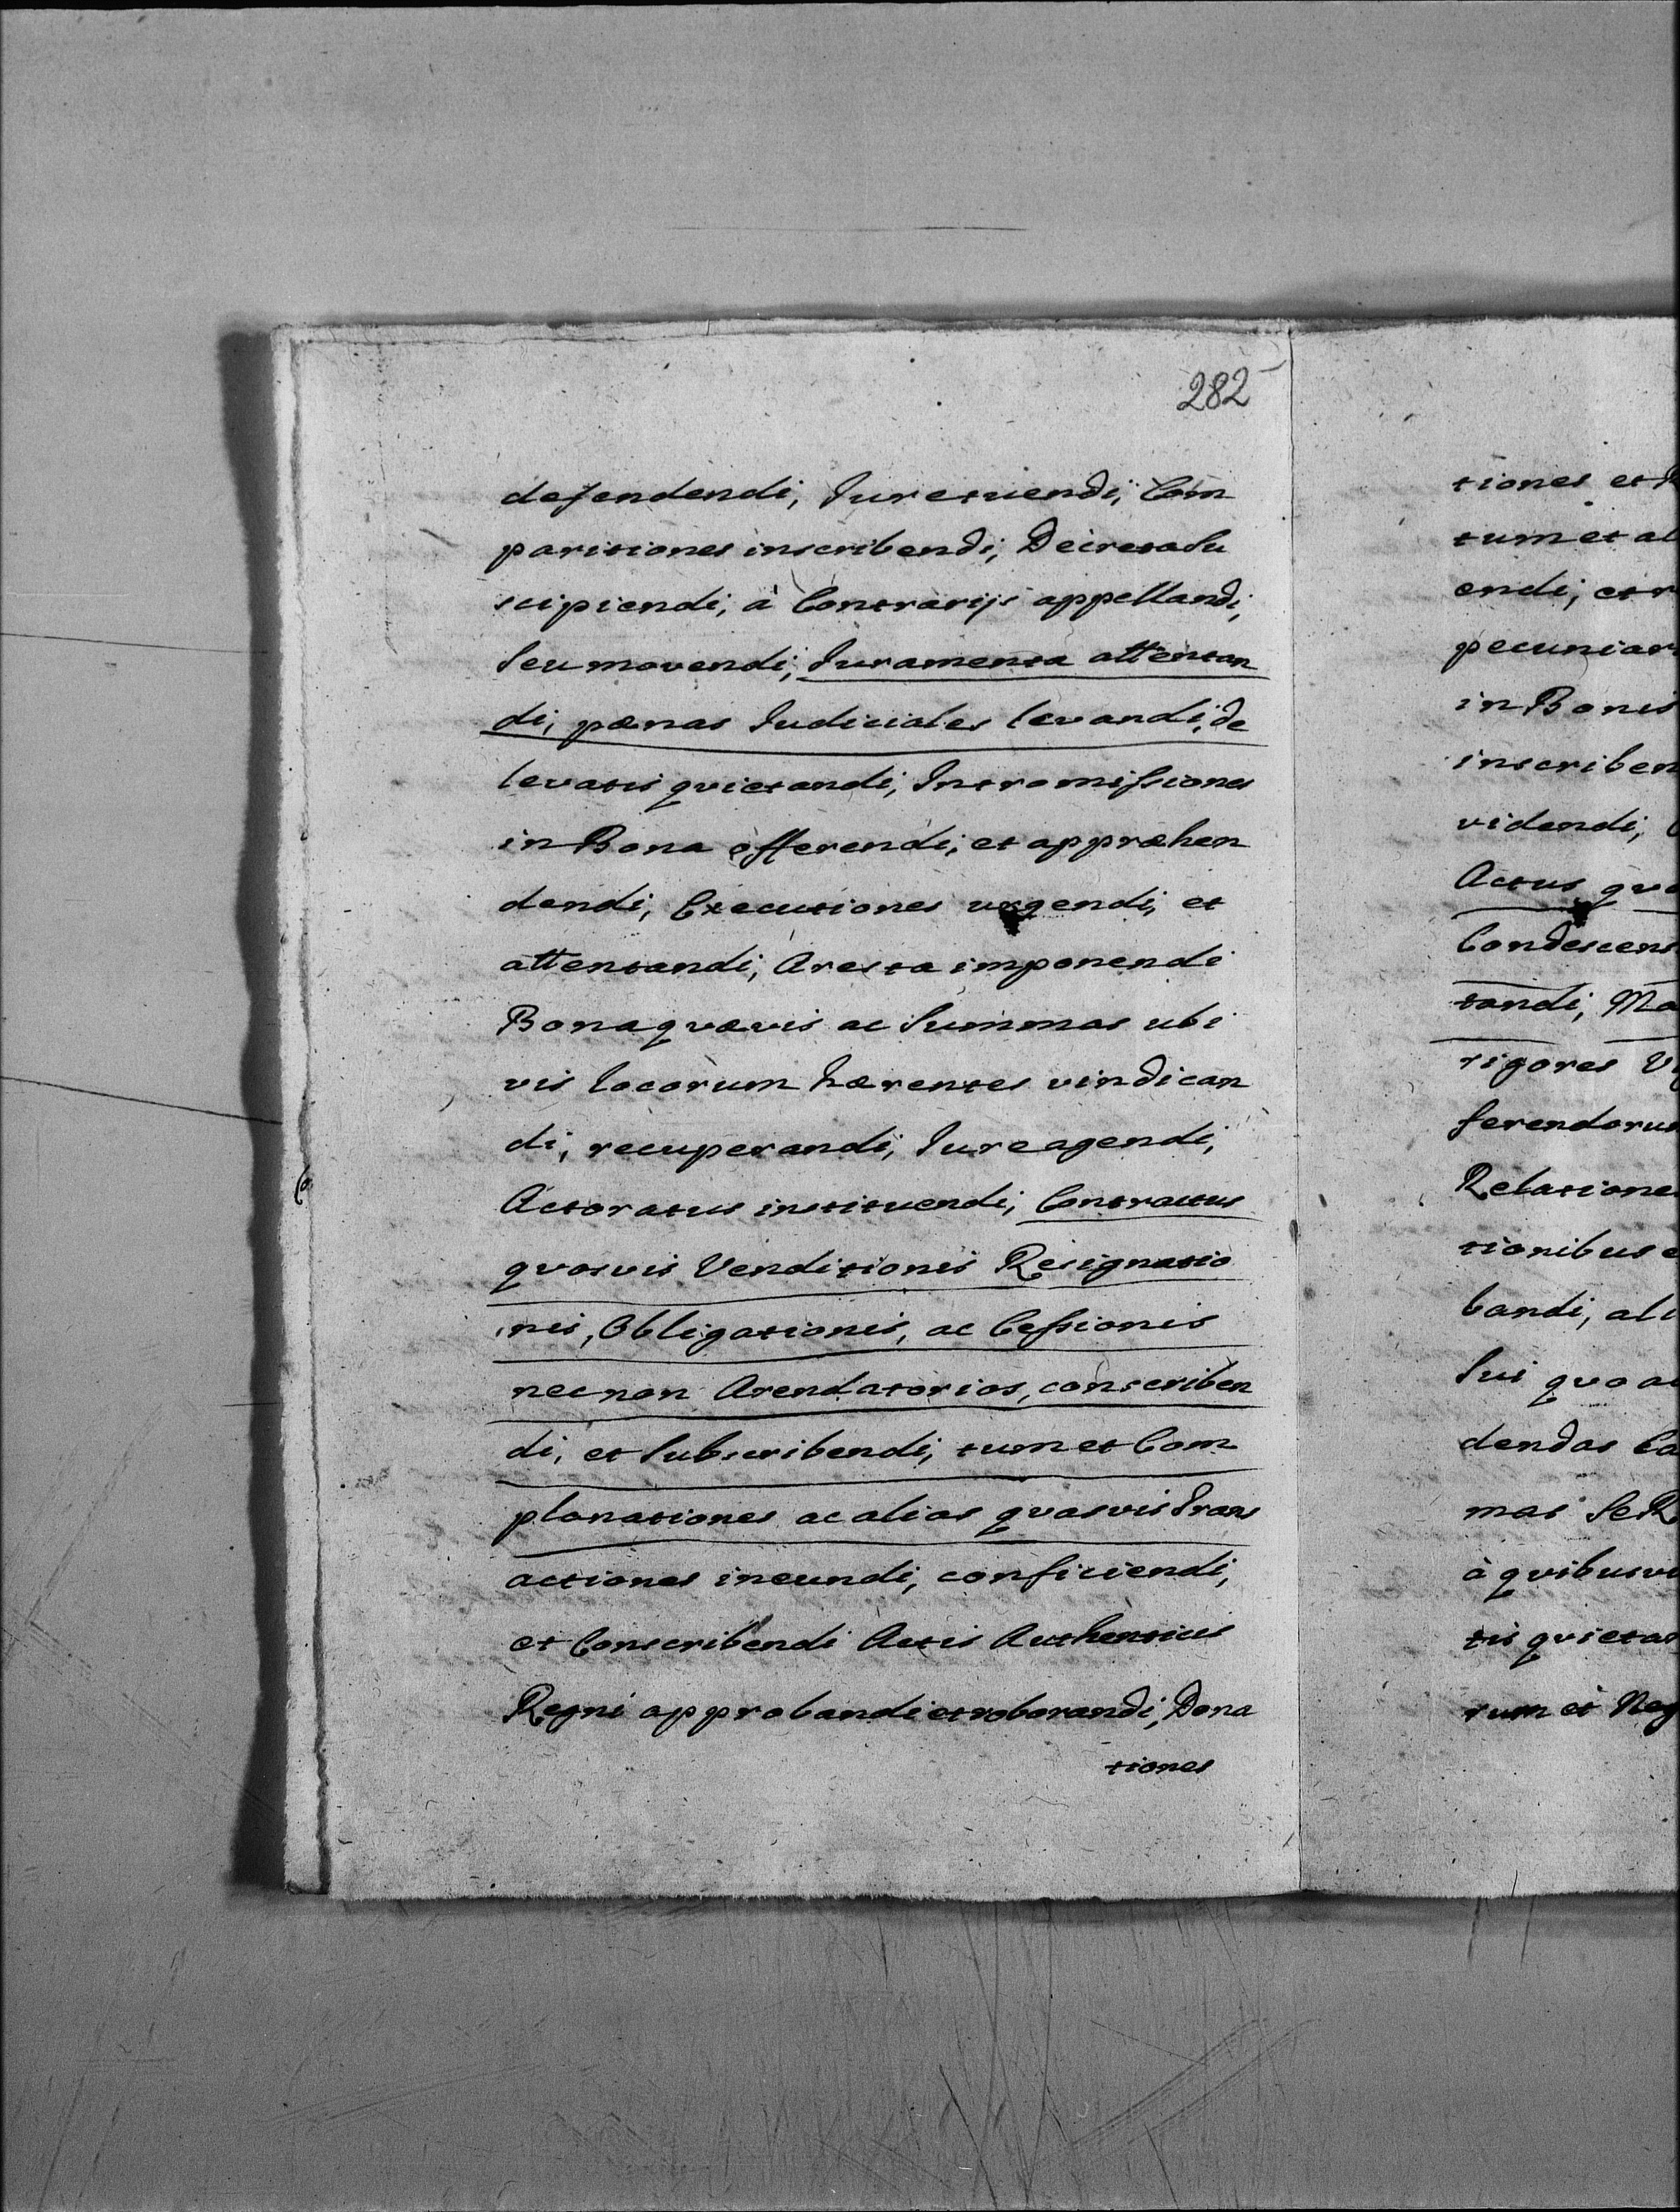 282
defendendi, Iuretuendi, Com
paritiones inscribendi, Decreta Su
scipiendi, à Contrarijs appellandi,
Seu movendi, Iuramenta attentan
di, pænas Iudiciales levandi, de
levatis qvietandi, Intromissiones
in Bona offerendi, et appræhen
dendi, Executiones urgendi, et
attentandi, Aresta imponendi
Bona qvævis ac Summas ubi
vis locorum hærentes vindican
di, recuperandi, Iure agendi,
Actoratus instituendi, Contractus
qvosvis Venditionis Resignatio
nis, Obligationis, ac Cessionis
nec non Arendatorios, conscriben
di, et Subscribendi, tum et Com
planationes ac alias qvasvis Trans
actiones ineundi, conficiendi,
et Conscribendi Actis Authenticis
Regni approbandi et roborandi, Dona
tiones
tiones et
tum et al
endi, et
pecuniar
in Bonis
inscriben
videndi,
Actus qvo
Condescens
tandi, Ma
rigores
ferendorum
Relatione
tionibus
bandi, ali
Sui qvo a
dendas Ca
mas Se
à qvibusvi
tis qvietan
rum et Neg